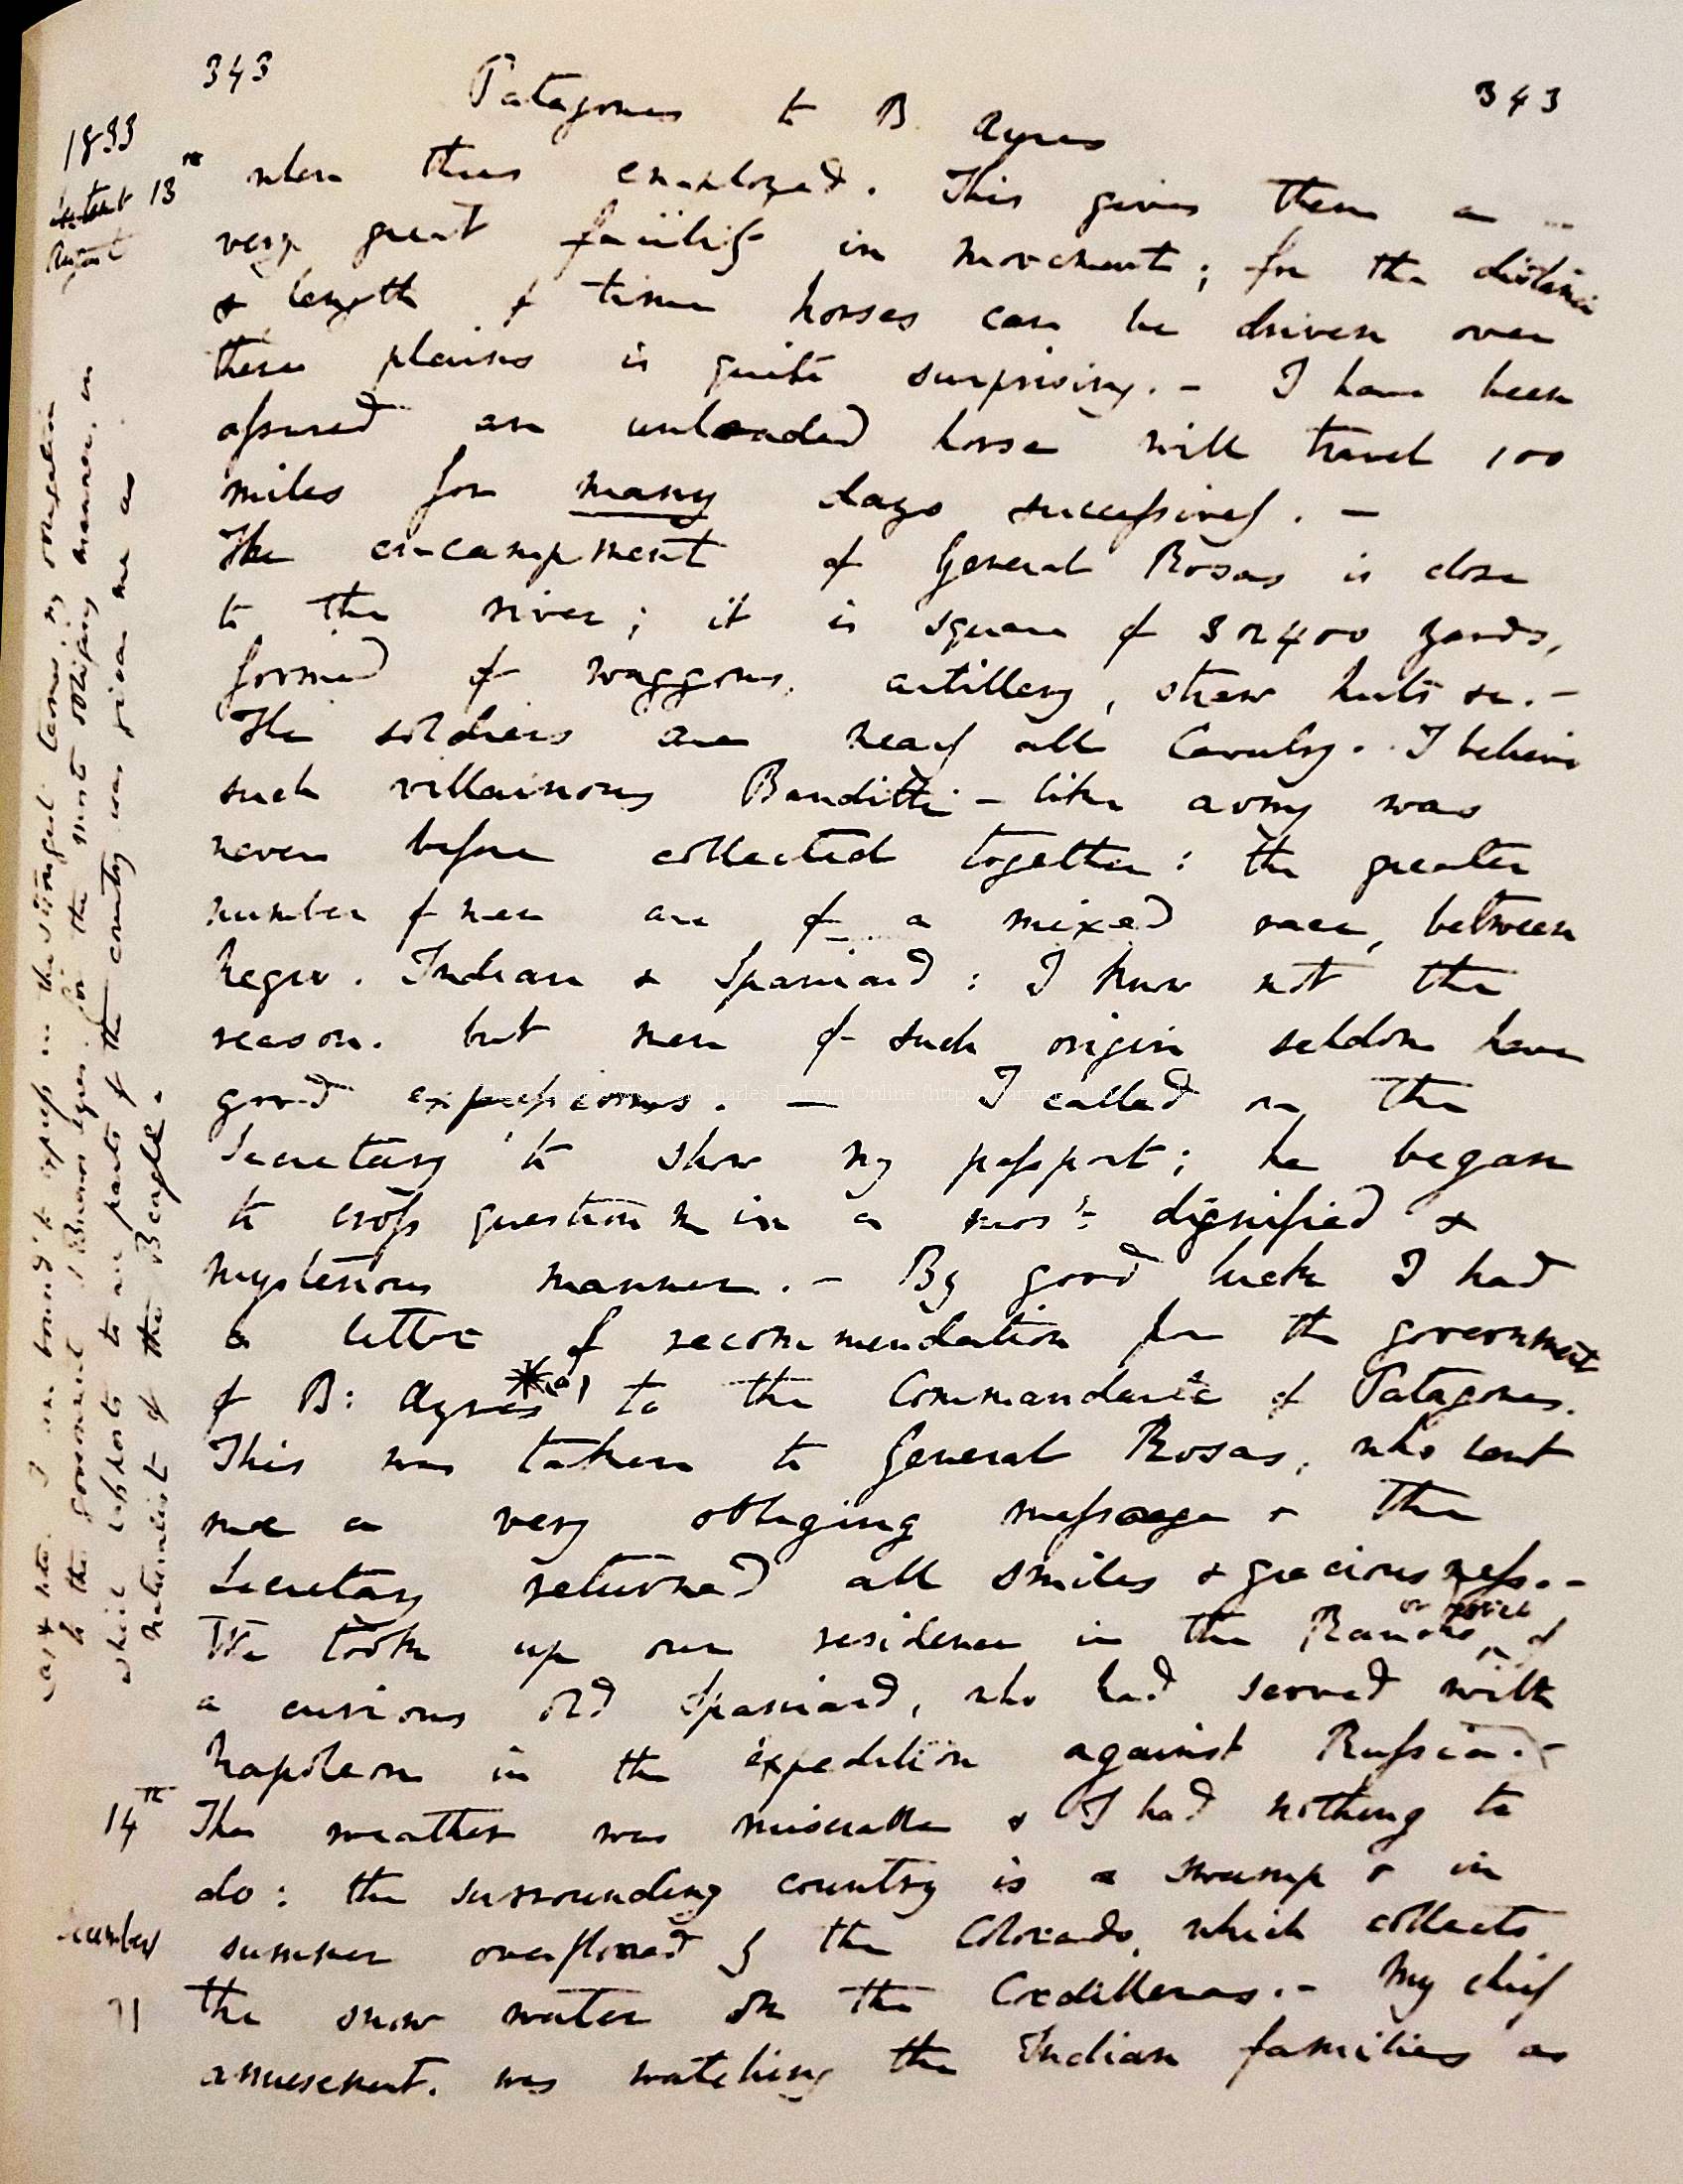 343 Patagones to B. Ayres 343
1833
August 13th
when thus employed. This gives them a
very great facility in movement; for the distance
& length of time horses can be driven over
these plains is quite surprising. — I have been
assured an unloaded horse will travel 100
miles for many days successively. —
The encampment of General Rosas is close
to the river; it is square of 3 or 400 yards,
formed of waggons, artillery, straw huts &c. —
The soldiers are nearly all Cavalry. I believe
such villainous Banditti-like army was
never before collected together: the greater
number of men are of a mixed race, between
Negro, Indian & Spaniard: I know not the
reason, but men of such origin seldom have
good expressions. — I called on the
Secretary to show my passport; he began
to cross question me in a most dignified &
mysterious manner. — By good luck I had
a letter of recommendation from the government
of B: Ayres *(a) to the Commandante of Patagones.
This was taken to General Rosas, who sent
me a very obliging message & the
Secretary returned all smiles & graciousness. —
We took up our residence in the Rancho or hovel of
a curious old Spaniard, who had served with
Napoleon in the expedition against Russia. —
14th The weather was miserable & I had nothing to
do: the surrounding country is a swamp & in
summer overflowed by the Colorado, which collects
the snow water on the Cordilleras. — My chief
amusement was watching the Indian families as
(a) * I am bound to express in the strongest terms, my obligation
to the government of Buenos Ayres for the most obliging manner, in
which passports to all parts of the country was given me as
naturalist of the Beagle.